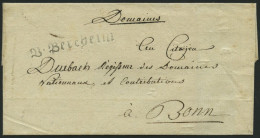 Domaines
B. Bercheim
Au Citoyen
Duxbach Régisseur des Domaines
nationaux et Contributions
à Bonn